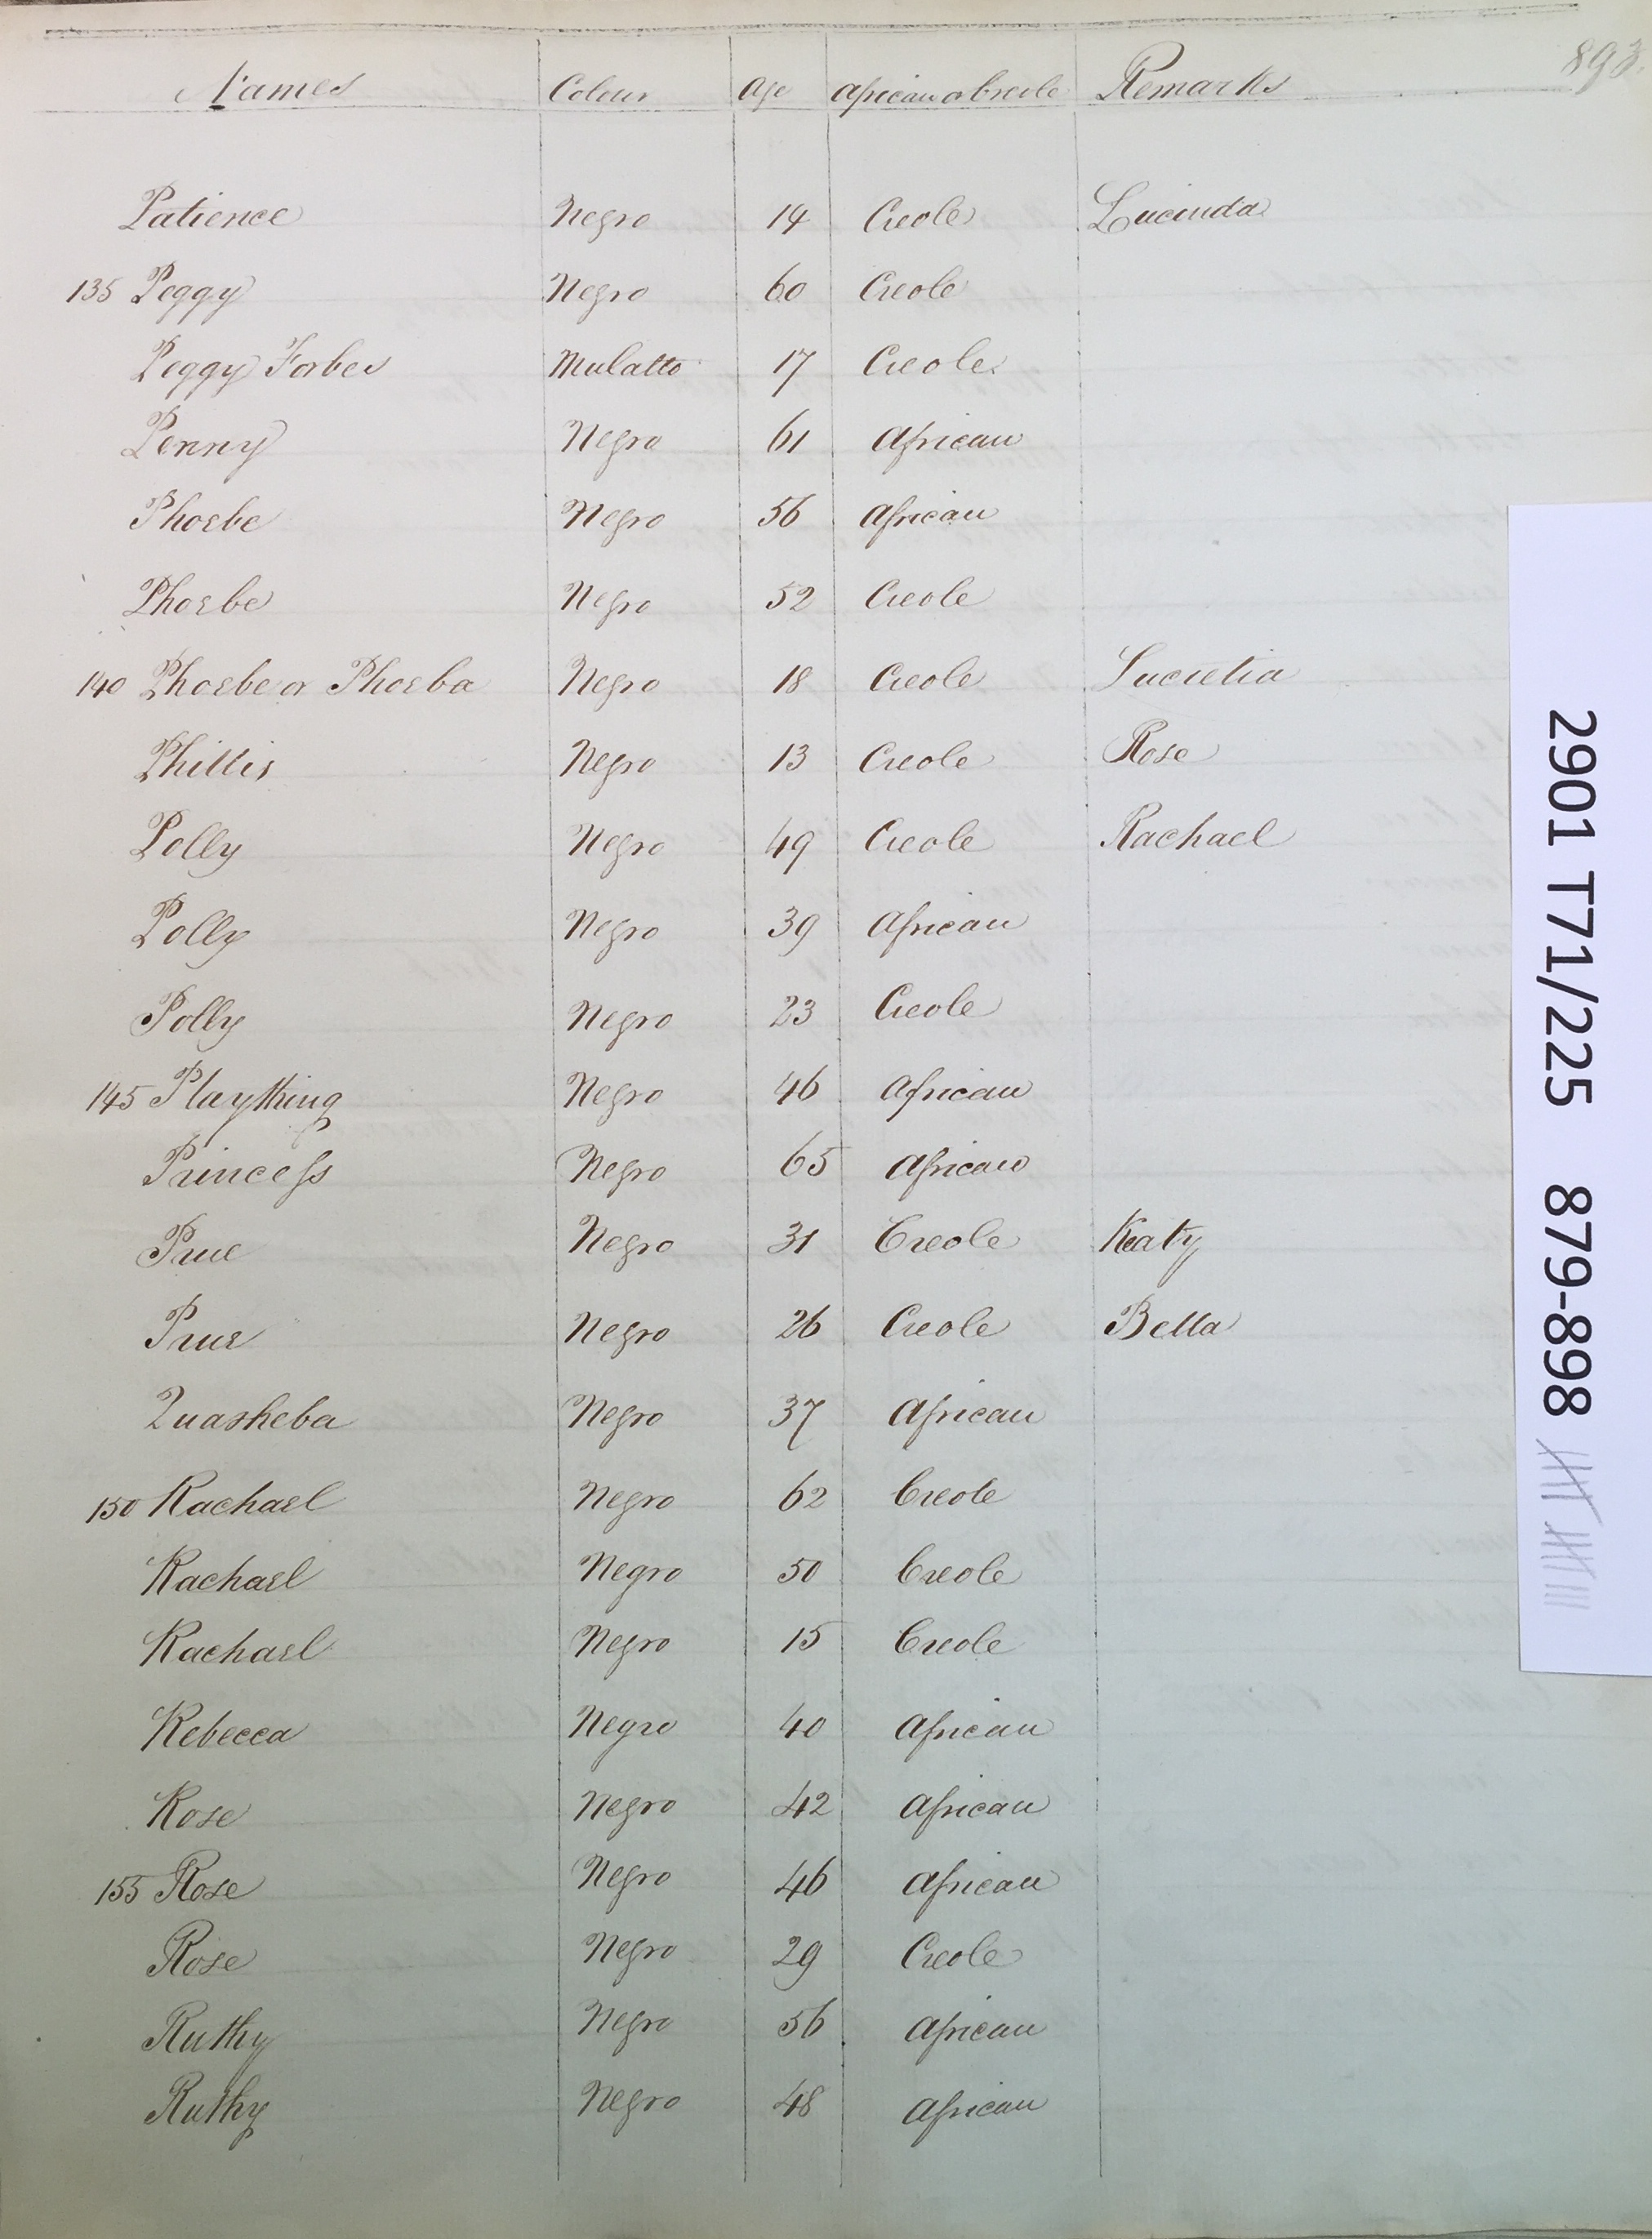 893.
Names Colour Age African or Creole Remarks
Patience Negro 14 Creole Lucinda
135 Peggy Negro 60 Creole
Peggy Forbes Mulatto 17 Creole
Penny Negro 61 African
Phoebe Negro 56 African
Phoebe Negro 52 Creole
140 Phoebe or Phoeba Negro 18 Creole Lucretia
Phillis Negro 13 Creole Rose
Polly Negro 49 Creole Rachael
Polly Negro 39 African
Polly Negro 23 Creole
145 Plaything Negro 46 African
Princess Negro 65 African
Prue Negro 31 Creole Keaty
Prue Negro 26 Creole Bella
Quasheba Negro 37 African
150 Rachael Negro 62 Creole
Rachael Negro 50 Creole
Rachael Negro 15 Creole
Rebecca Negro 40 African
Rose Negro 42 African
155 Rose Negro 46 African
Rose Negro 29 Creole
Ruthy Negro 56 African
Ruthy Negro 48 African
2901 T71/225 879-898